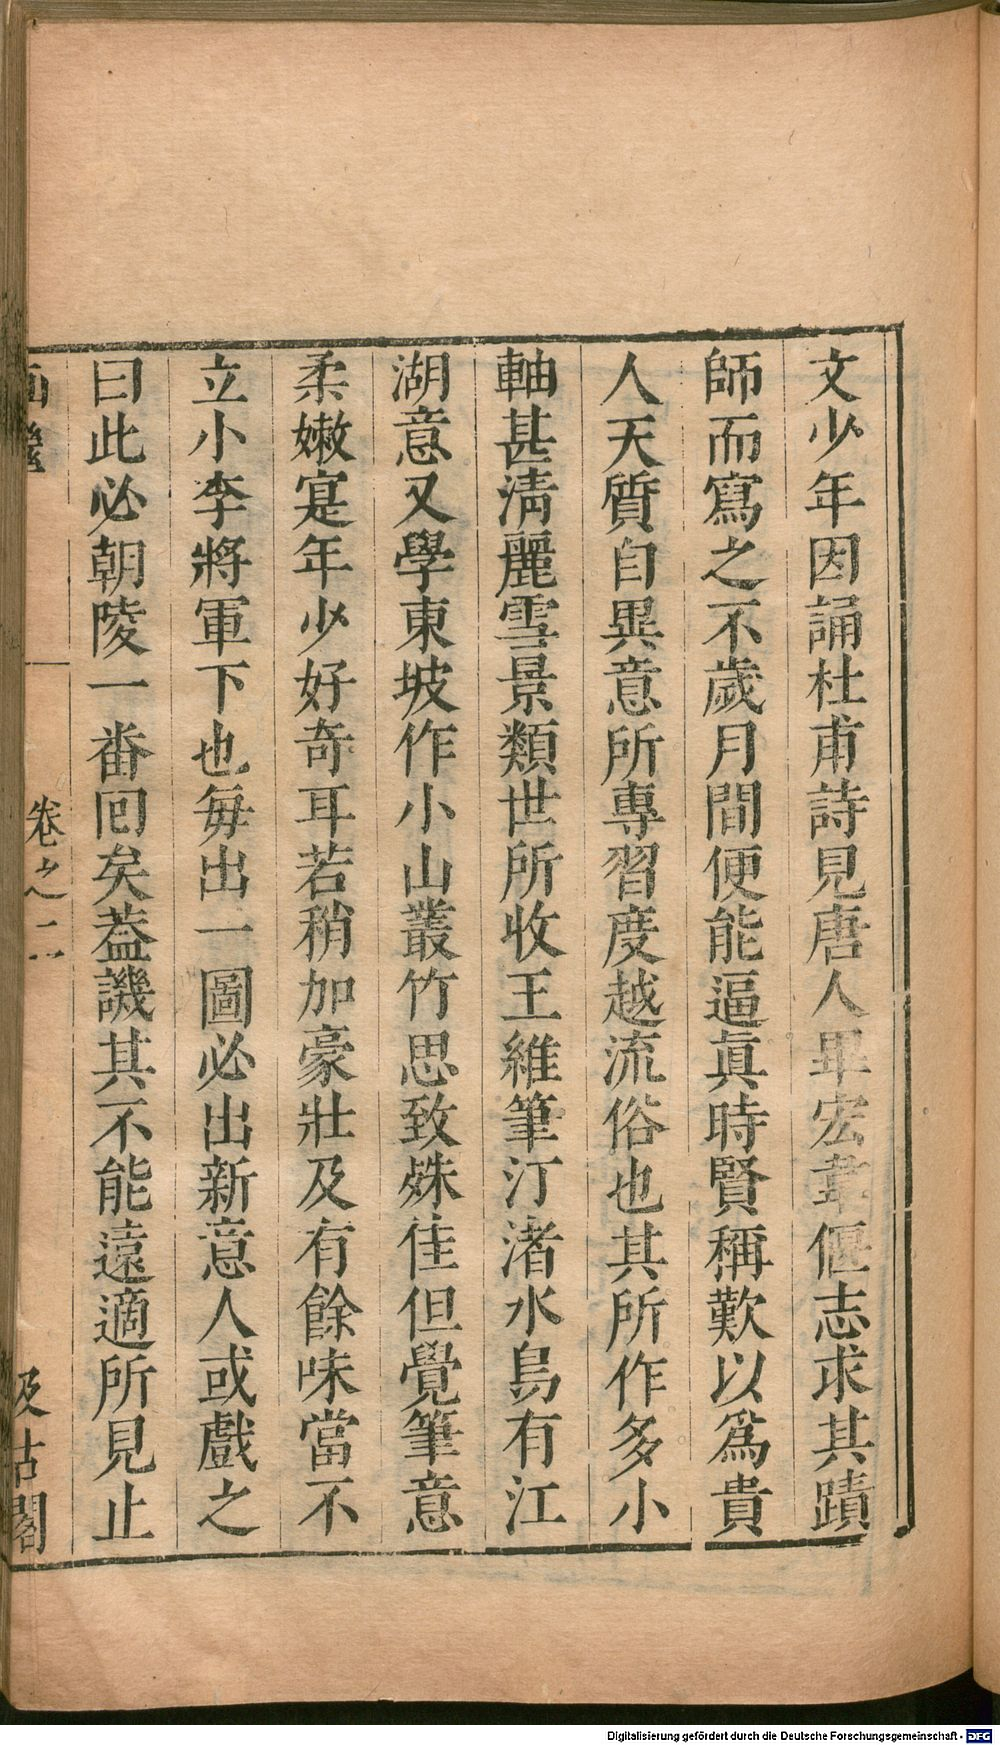 文少年因誦杜甫詩見唐人畢宏韋偃志求其蹟
師而寫之不歲月間便能逼眞時賢稱歎以爲貴
人天質自異意所專習度越流俗也其所作多小
軸甚淸麗雪景類世所收王維筆汀渚水鳥有江
湖意又學東坡作小山叢竹思致殊佳但覺筆意
柔嫩寔年少好奇耳若稍加豪壯及有餘味當不
立小李將軍下也每出一圖必出新意人或戲之
曰此必朝陵一番囘矣葢譏其不能遠適所見止
畫繼
卷之二
汲古閣
Digitalisierung gefördert durch die Deutsche Forschungsgemeinschaft - DFG